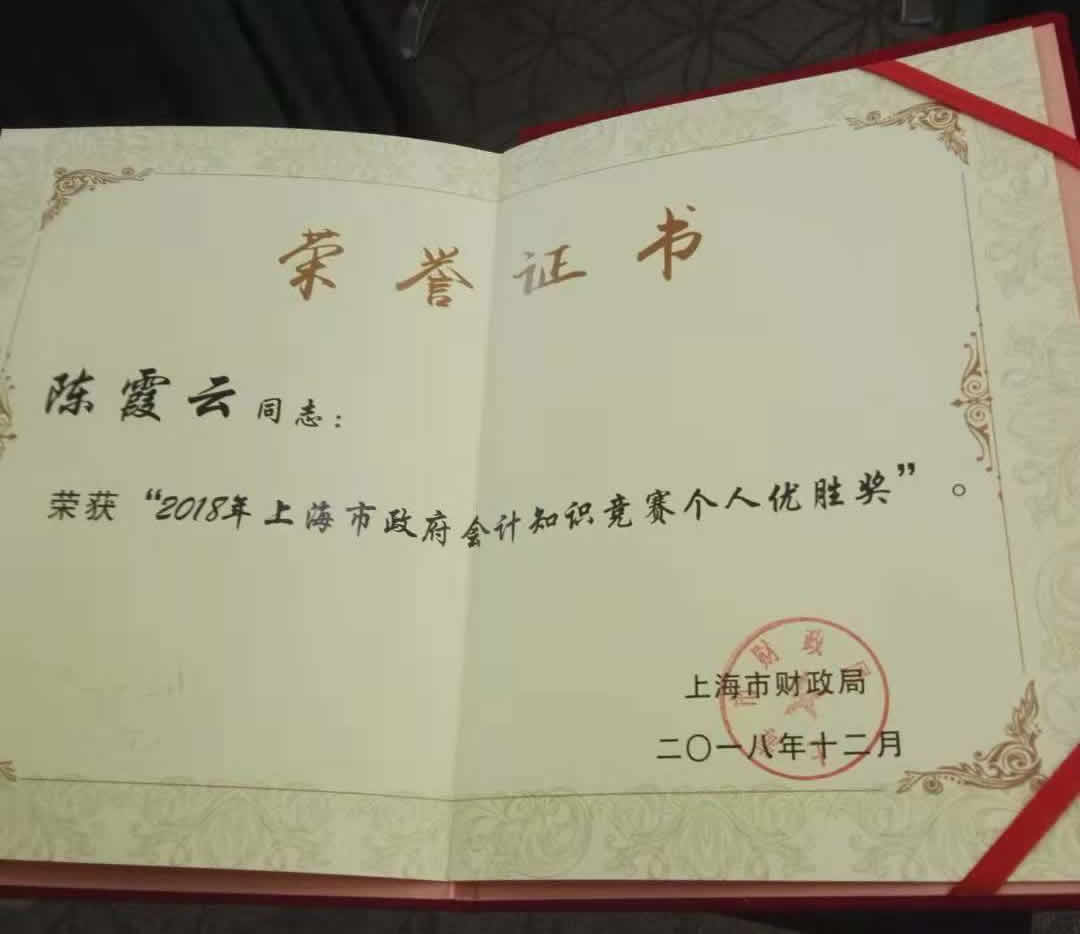 荣誉证书
陈霞云同志：
荣获“2018年上海市政府会计知识竞赛个人优胜奖”。
上海市财政局
二〇一八年十二月